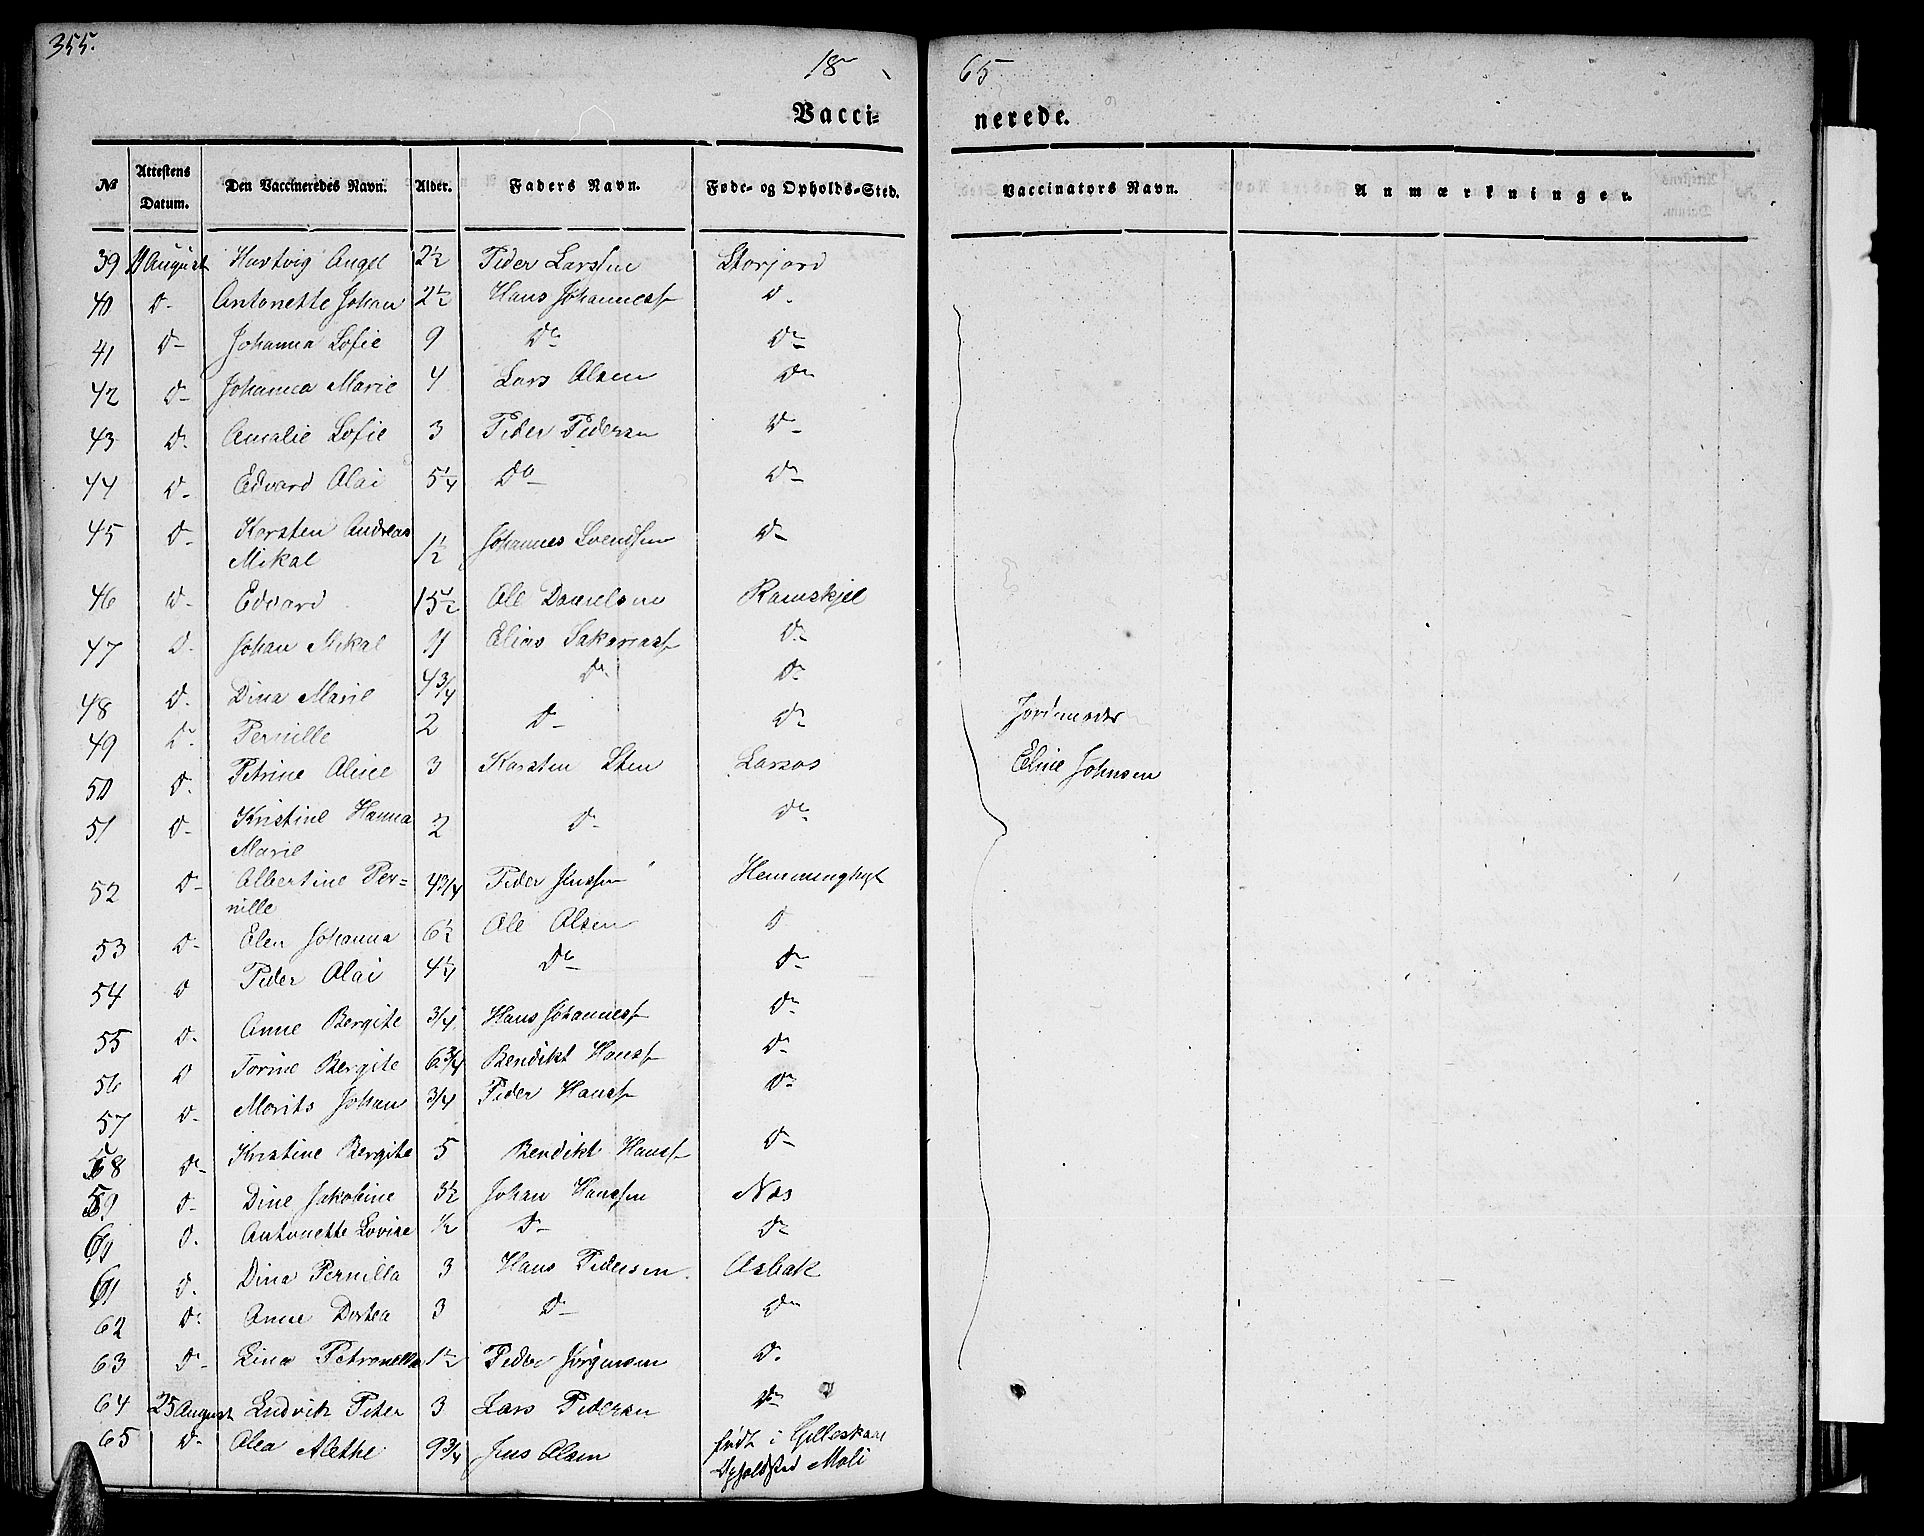 355.
18
65
Vacci=
nerede.
No Attestens Datum. Den Vaccineredes Navn. Alder. Faders Navn. Føde- og Opholds-Sted. Vaccinators Navn. Anmærkninger.
39 11 August Hartvig Angel 2½ Peder Larsen Storjord
40 Do Antonette Johan 2½ Hans Johanness Do
41 Do Johanna Sofie 9 Do Do
42 Do Johanna Marie 4 Lars Olsen Do
43 Do Amalie Sofie 3 Peder Pedersen Do
44 Do Edvard Olai 5¼ Do Do
45 Do Karsten Andreas
Mikal 1½ Johannes Svendsen Do
46 Do Edvard 15½ Ole Danielsen Ramskjel
47 Do Johan Mikal 11 Elias Sakariass Do
48 Do Dina Marie 4¾ Do Do
49 Do Pernille 2 Do Do
Jordmoder
50 Do Petrine Oline 3 Karsten Sten Larsos
Eline Johnsen
51 Do Kristine Hanna
Marie ½ Do Do
52 Do Albertine Per=
nille 4¾ Peder Jenssen Hemminghyt
53 Do Elen Johanna 6½ Ole Olsen Do
54 Do Peder Olai 4¼ Do Do
55 Do Anne Bergite ¾ Hans Johanness Do
56 Do Torine Bergite 6¾ Bendikt Hanss Do
57 Do Morits Johan ¾ Peder Hanss Do
58 Do Kristine Bergite 5 Bendikt Hanss Do
59 Do Dine Jakobine 3½ Johan Hanssen Nos
60 Do Antonette Lovise ½ Do Do
61 Do Dina Pernilla 3 Hans Pedersen Asbak
62 Do Anne Dortea 3 Do Do
63 Do Lina Petronella 1½ Peder Jørgensen Do
64 25 August Ludvik Peter 3 Lars Pedersen Do
65 Do Olea Alethe 9¾ Jens Olsen født i Gilleskaal
Opholdsted Moli